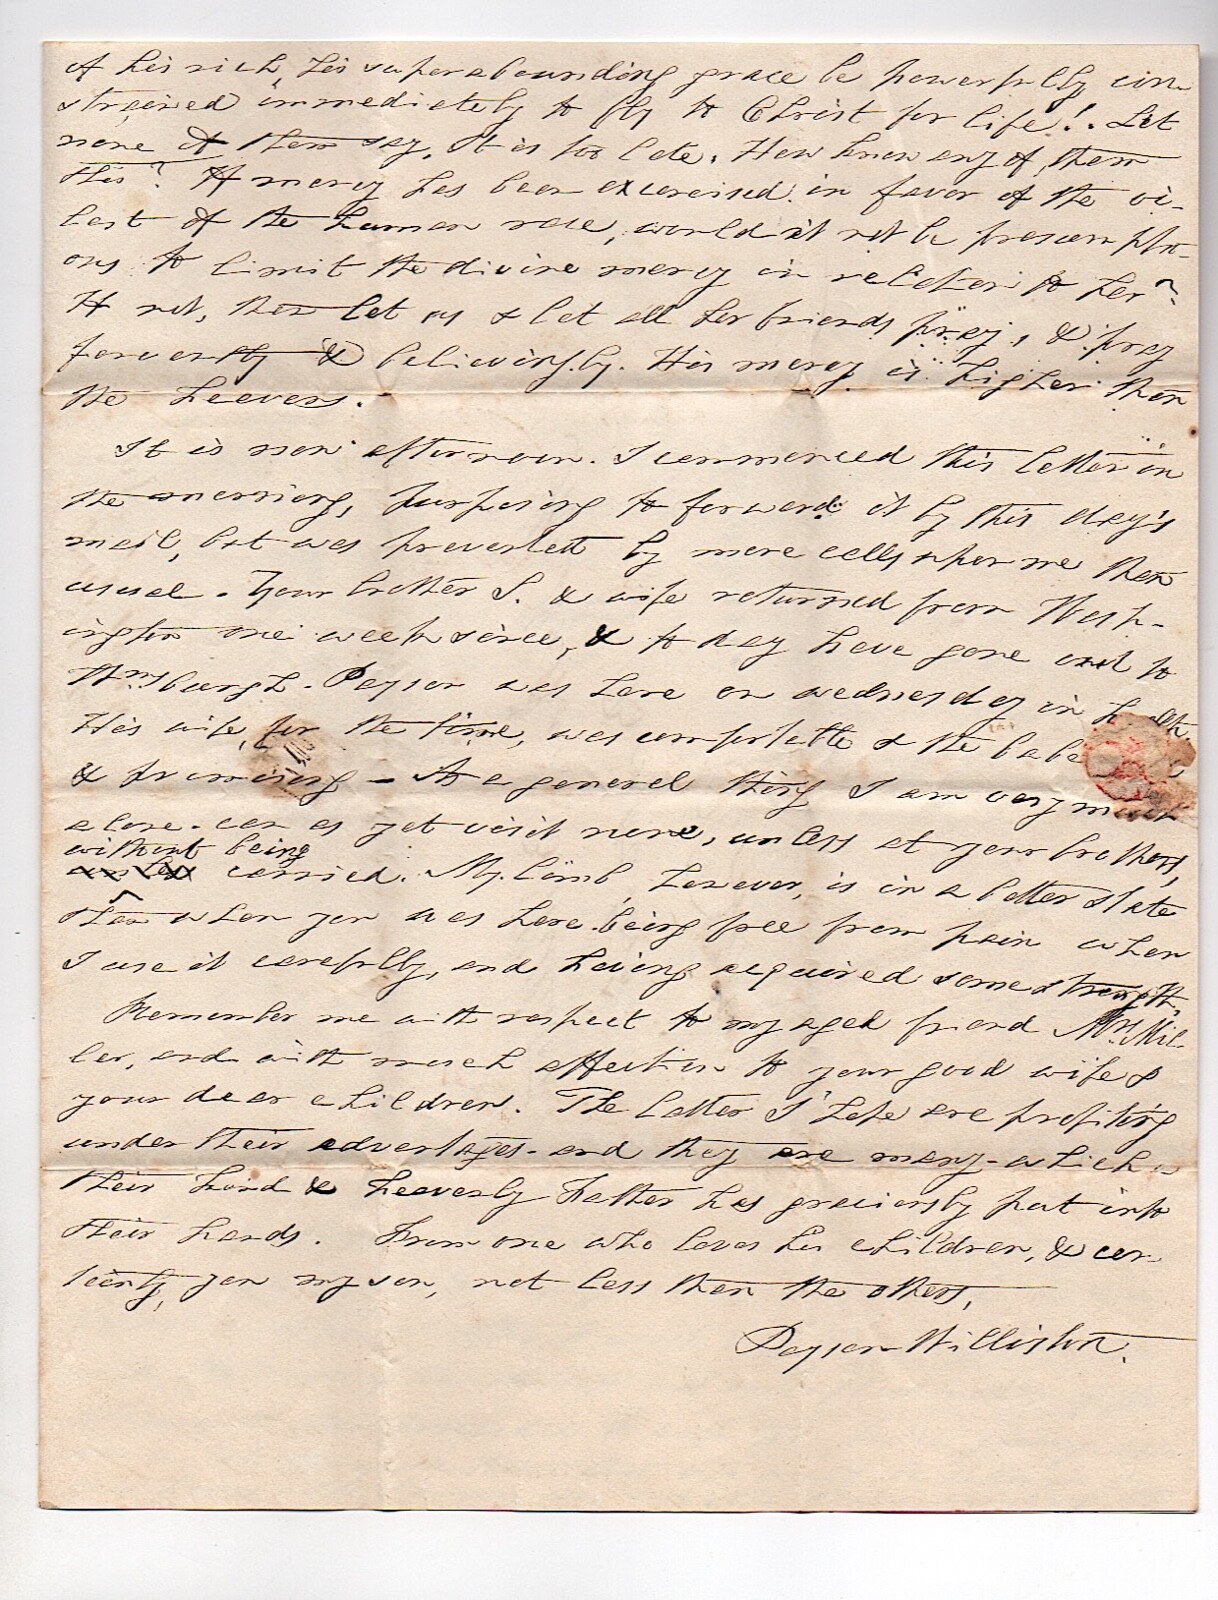 of his rich, his superabounding grace be powerfully con-
strained immediately to fly to Christ for life! Let
none of them say, It is too late. How know any of them
this? If mercy has been exercised in favor of the vi-
lest of the human race, would it not be presumptu-
ous to limit the divine mercy in relation to her?
If not, then let us & let all her friends pray, & pray
fervently & believingly. His mercy is higher than
the heavens.
It is now afternoon. I commenced this letter in
the morning, purposing to forward it by this day's
mail, but was prevented by more calls upon me than
usual. Your brother S. & wife returned from Wash-
ington one week since, & to day have gone out to
Wmsburgh. Payson was here on wednesday in health
His wife, for the time, was comfortable & the babe
& promising - As a general thing I am very much
alone. can as yet visit none, unless at your brothers,
without being
carried. My limb, however, is in a better state
than when you was here being free from pain when
I use it carefully, and having acquired some strength,
Remember me with respect to my aged friend Mrs. Mil-
ler, and with much affection to your good wife &
your dear children. The latter I hope are profiting
under their advantages - and they are many - which
their kind & heavenly Father has graciously put into
their hands. From one who loves his children, & cer-
tainly, you my son, not less than the others,
Payson Williston.